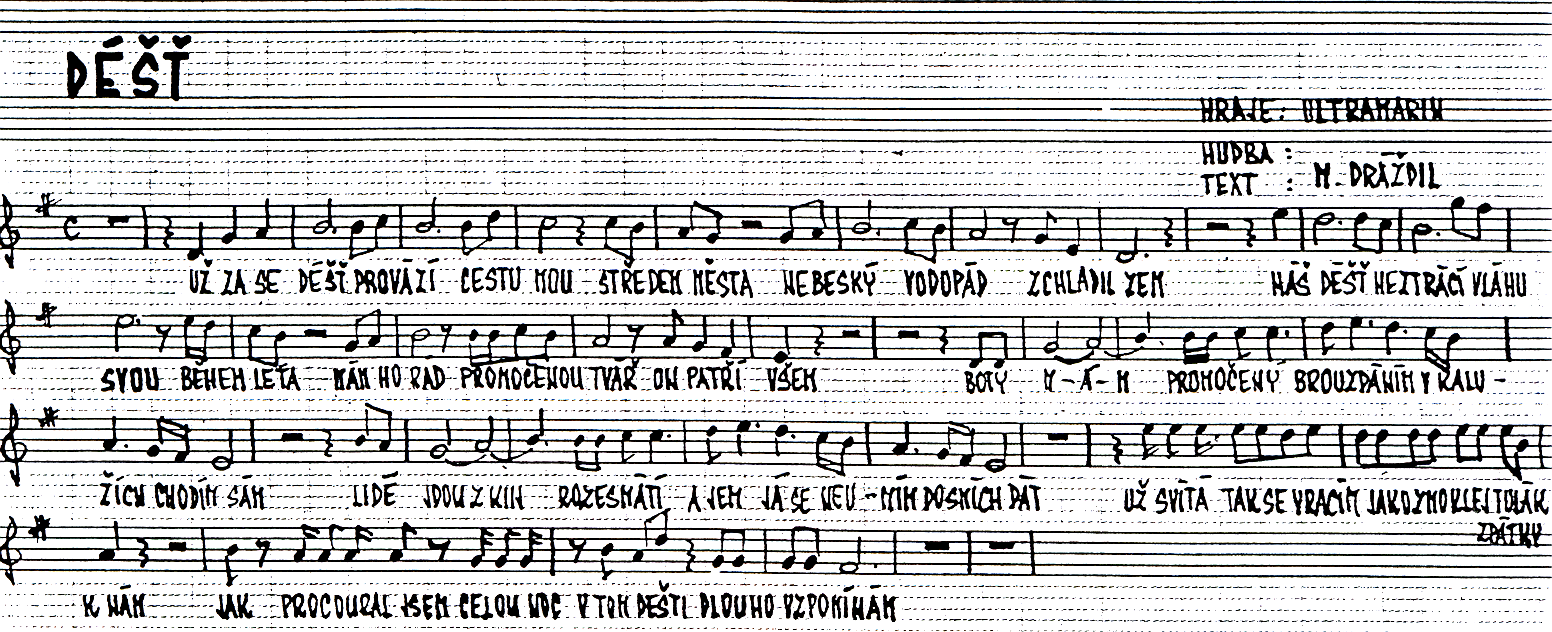 DÉŠŤ
HRAJE: ULTRAMARIN
HUDBA :
TEXT : M. DRÁŽDIL
UŽ ZA SE DÉŠŤ PROVÁZÍ CESTU MOU STŘEDEM MĚSTA NEBESKÝ VODOPÁD ZCHLADIL ZEM NÁŠ DÉŠŤ NEZTRÁCÍ VLÁHU
SVOU BĚHEM LÉTA MÁM HO RÁD PROMOČENOU TVÁŘ ON PATŘÍ VŠEM BOTY M-Á-M PROMOČENÝ BROUZDÁNÍM V KALU-
ŽÍCH CHODÍM SÁM LIDÉ JDOU Z KIN ROZESMÁTÍ A JEN JÁ SE NEU-MÍM DO SMÍCH DÁT UŽ SVÍTÁ TAK SE VRACÍM JAKO ZMOKLEJ TULÁK
ZPÁTKY
K NÁM JAK PROCOURAL JSEM CELOU NOC V TOM DEŠTI DLOUHO VZPOMÍNÁM